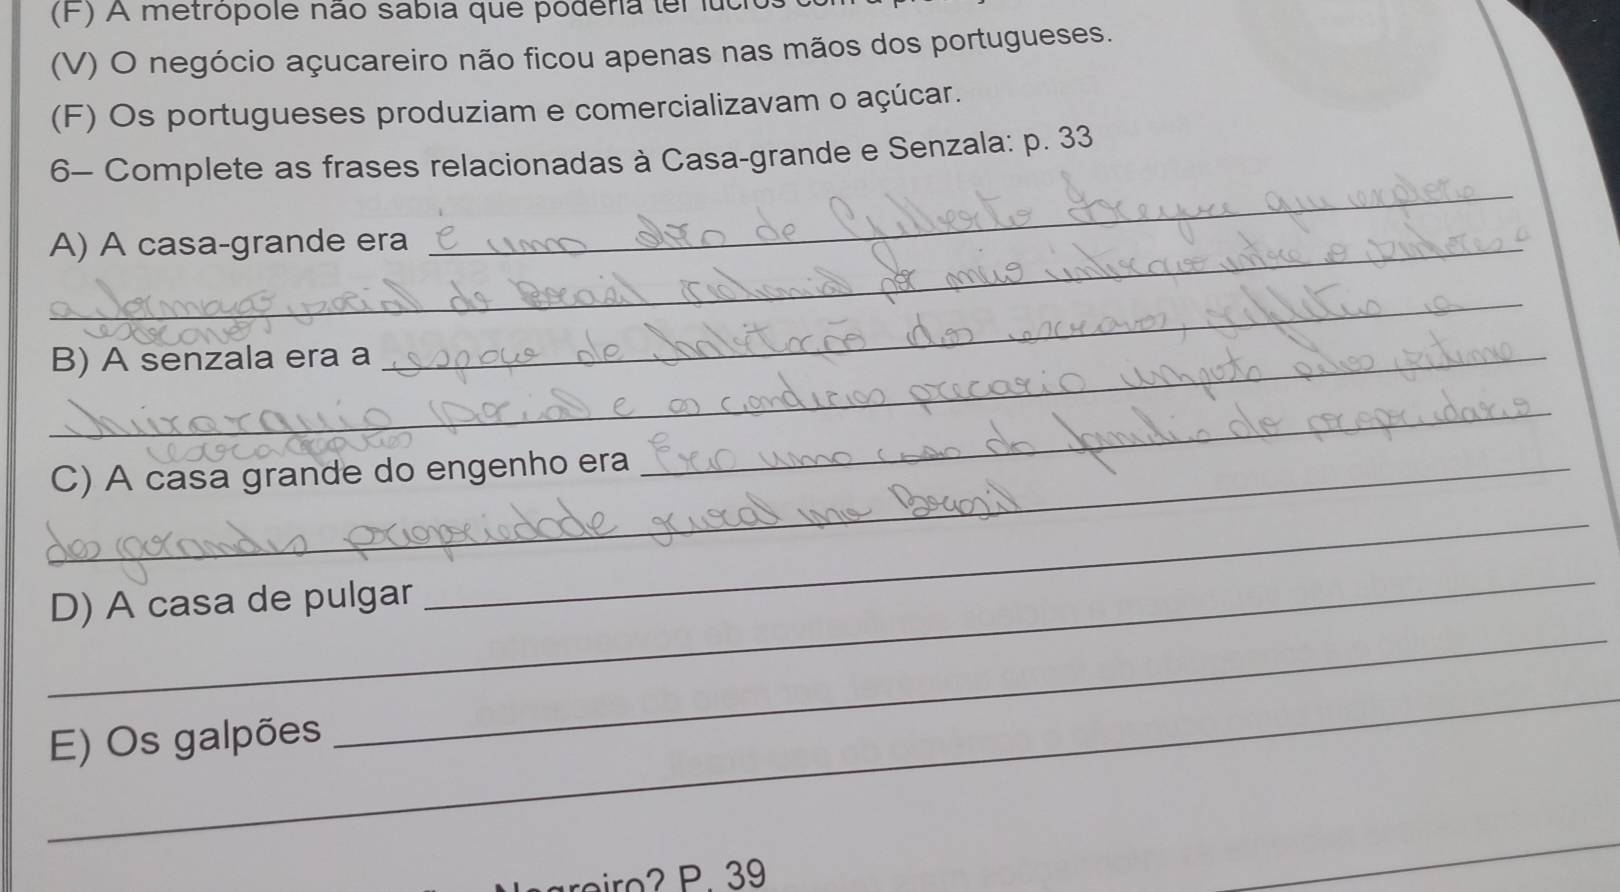 (F) A metrópole não sabia que poderia ter lucros
(V) O negócio açucareiro não ficou apenas nas mãos dos portugueses.
(F) Os portugueses produziam e comercializavam o açúcar.
6– Complete as frases relacionadas à Casa-grande e Senzala: p. 33
A) A casa-grande era e uma obra de Gilberto Freyre que explora
a formação social do Brasil colonial por meio
B) A senzala era a espaço de habitação dos escravos,
social e as condições precario
C) A casa grande do engenho era Era uma casa da familia do
das grandes propriedade rural no Brasil
D) A casa de pulgar
E) Os galpões
P. 39